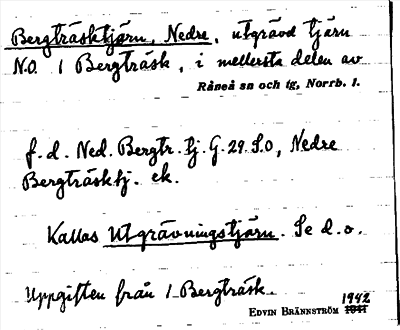 Bergträsktjärn, Nedre, utgrävd tjärn
N.O. 1 Bergträsk, i mellersta delen av
Råneå sn och tg, Norrb. l.
f. d. Ned. Bergtr. tj. G. 29 S.O, Nedre
Bergträsktj. ek.
Kallas Utgrävningstjärn. Se d. o.
Uppgiften från 1 Bergträsk.
EDVIN BRÄNNSTRÖM 1942